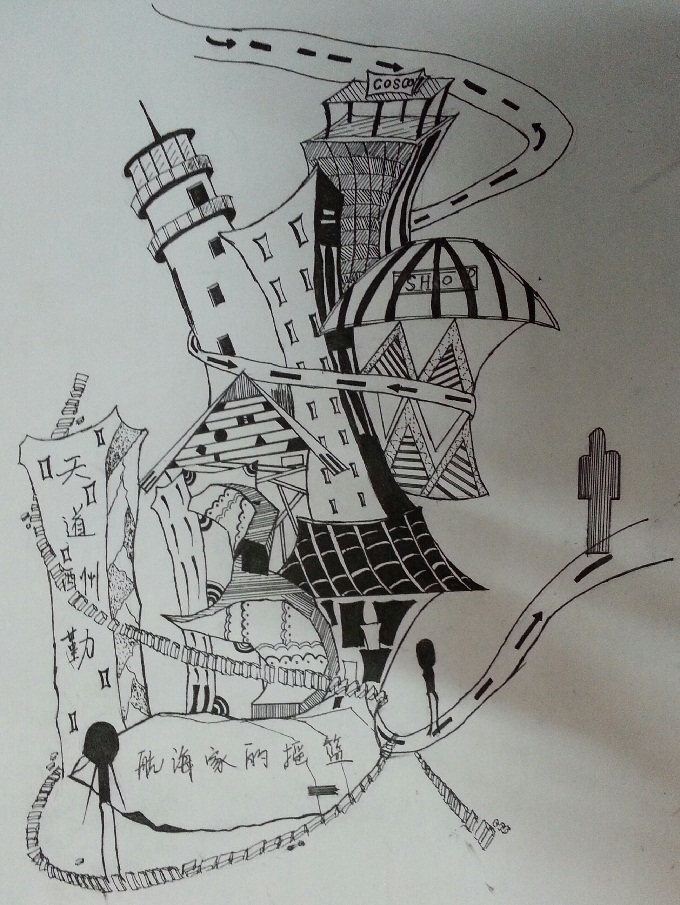 COSCO
SHOP
天道酬勤
航海家的摇篮